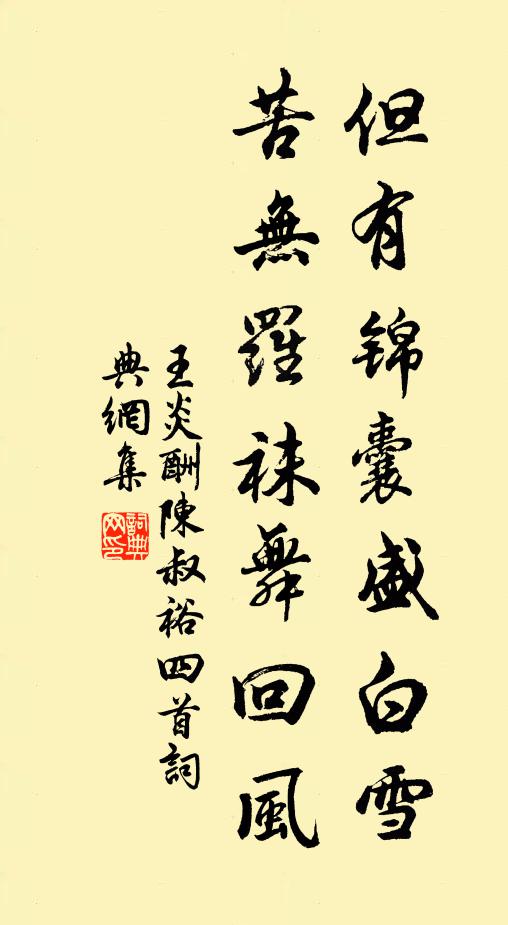 但有锦囊盛白雪
苦無羅袜舞回風
王炎酬陳叔裕四首詞
典網集
詞典
网印